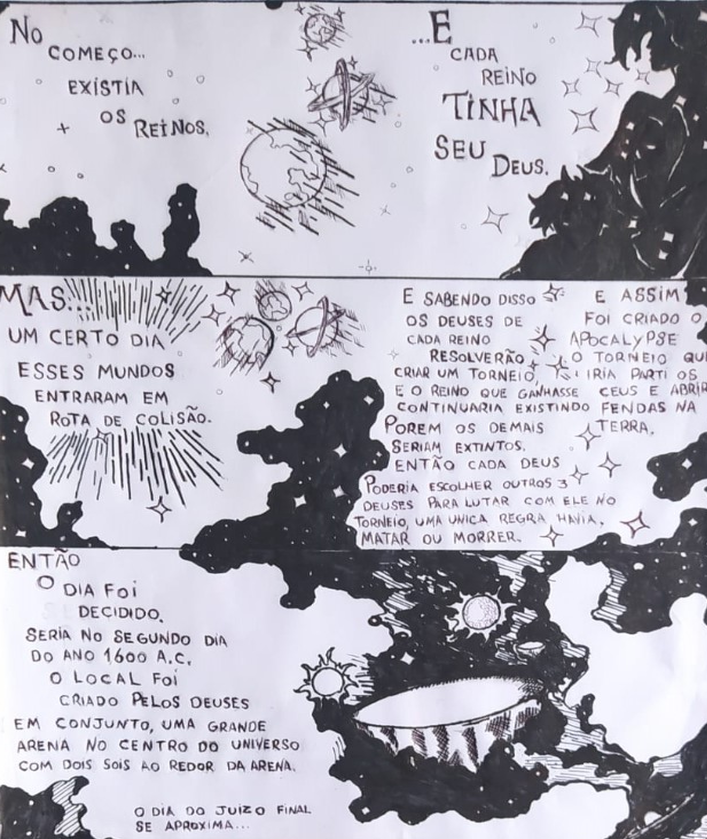 No
COMEÇO...
EXISTIA
OS REINOS.
...E
CADA
REINO
TINHA
SEU
DEUS.
MAS...
UM CERTO DIA
ESSES MUNDOS
ENTRARAM EM
ROTA DE COLISÃO.
E SABENDO DISSO
OS DEUSES DE
CADA REINO
RESOLVERÃO
CRIAR UM TORNEIO,
E O REINO QUE GANHASSE
CONTINUARIA EXISTINDO
POREM OS DEMAIS
SERIAM EXTINTOS.
ENTÃO CADA DEUS
PODERIA ESCOLHER OUTROS 3
DEUSES PARA LUTAR COM ELE NO
TORNEIO, UMA UNICA REGRA HAVIA,
MATAR OU MORRER.
E ASSIM
FOI CRIADO O
APOCALYPSE
O TORNEIO QUE
IRIA PARTI OS
CEUS E ABRIR
FENDAS NA
TERRA.
ENTÃO
O DIA FOI
DECIDIDO.
SERIA NO SEGUNDO DIA
DO ANO 1600 A.C.
O LOCAL FOI
CRIADO PELOS DEUSES
EM CONJUNTO, UMA GRANDE
ARENA NO CENTRO DO UNIVERSO
COM DOIS SOIS AO REDOR DA ARENA.
O DIA DO JUIZO FINAL
SE APROXIMA...